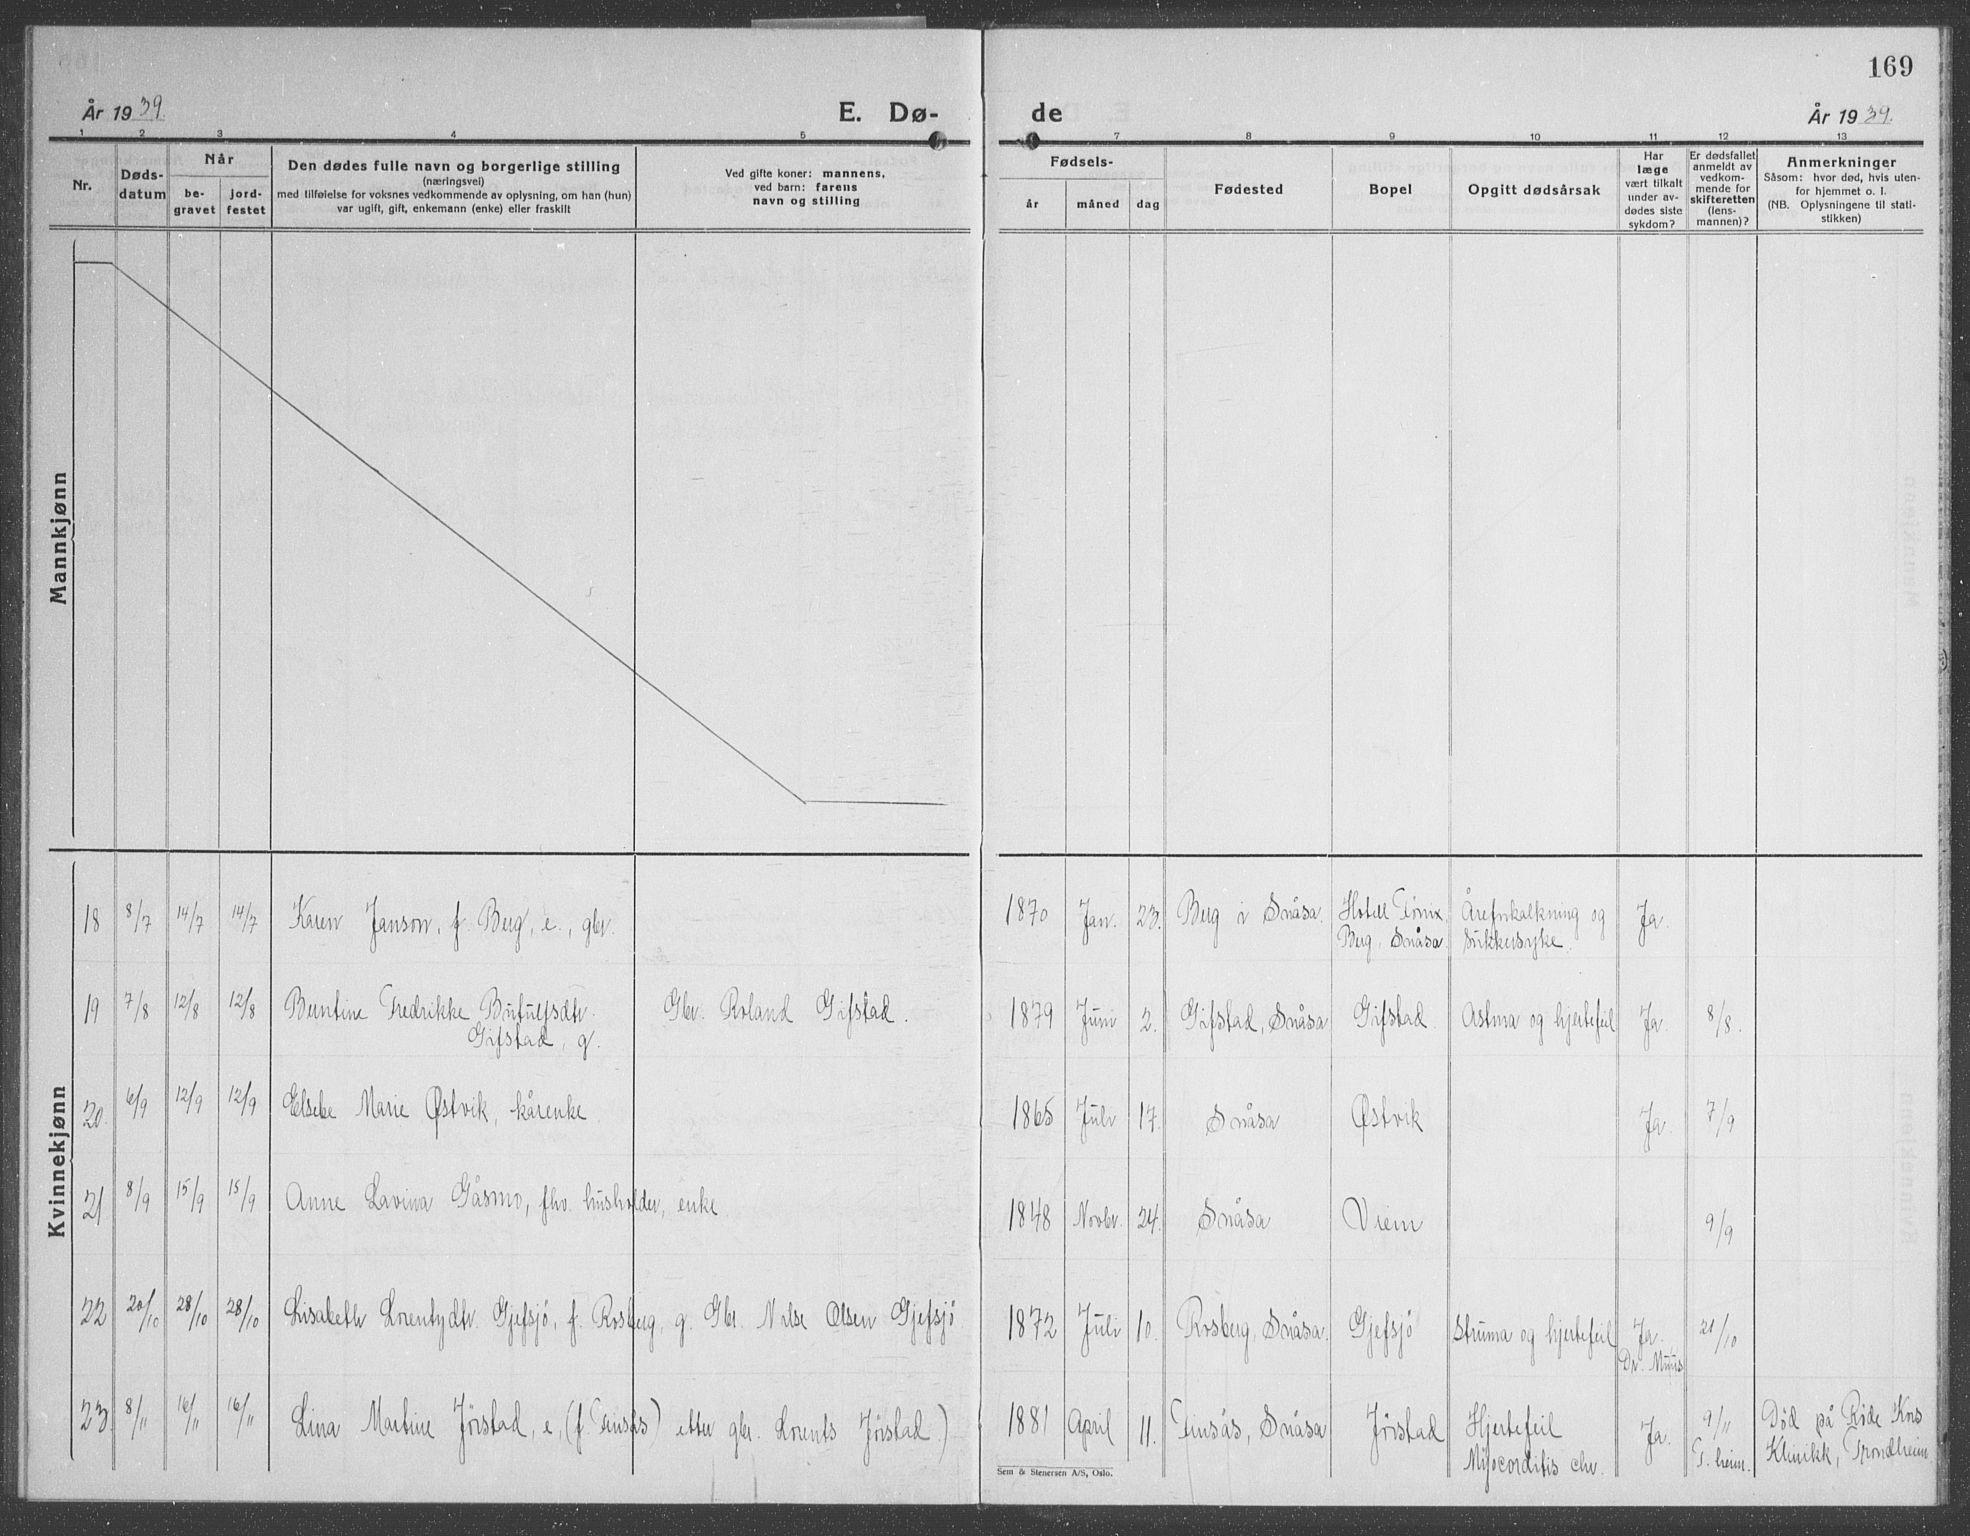 169
År 1939.
E. Dø-
de
År 1939.
1 2 3 4 5 7 8 9 10 11 12 13
Nr.
Døds-
datum
Når
be-
gravet
jord-
festet
Den dødes fulle navn og borgerlige stilling
(næringsvei)
med tilføielse for voksnes vedkommende av oplysning, om han (hun)
var ugift, gift, enkemann (enke) eller fraskilt
Ved gifte koner: mannens,
ved barn: farens
navn og stilling
Fødsels-
år måned dag
Fødested
Bopel
Opgitt dødsårsak
Har
læge
vært tilkalt
under av-
dødes siste
sykdom?
Er dødsfallet
anmeldt av
vedkom-
mende for
skifteretten
(lens-
mannen)?
Anmerkninger
Såsom: hvor død, hvis uten-
for hjemmet o. l.
(NB. Oplysningene til stati-
stikken)
Mannkjønn
Kvinnekjønn
18 8/7 14/7 14/7 Karen Janson, f. Berg, e., gbr. 1870 Jan. 23. Berg i Snåsa. Hotell Fønix, Årefrkalkning og Ja.
Berg, Snåsa. sukkersyke.
19 7/8 12/8 12/8 Berntine Fredrikke Gbr. Roland Gifstad. 1879 Juni 2. Gifstad, Snåsa Gifstad. Astma og hjertefeil Ja. 8/8.
Gifstad, g.
20. 6/9 12/9 12/9 Elsebe Marie Østvik, kårenke. 1865 Juli 17. Snåsa Østvik Ja. 7/9
21 8/9 15/9 15/9 Anne Lavina Gåsmo, fhv. husholder, enke 1848 Novbr. 24. Snåsa Viem 9/9
22 20/10 28/10 28/10 Lisabeth Lorentsdtr. Gjefsjø, f. Rosberg, g. Gbr. Nilse Olsen Gjefsjø 1872 Juli 10. Rosberg, Snåsa. Gjefsjø struma og hjertefeil Ja. 21/10
Dr. Muus
23. 8/11 16/11 16/11 Lina Martine Jørstad, e. (f. Finsås) etter gbr. Lorents Jørstad.) 1881 April 11. Finsås, Snåsa Jørstad Hjertefeil Ja. 9/11 Død på Røde Kors
Myocorditis chr. T.heim. Klinikk, Trondheim
Sem & Stenersen A/S, Oslo.